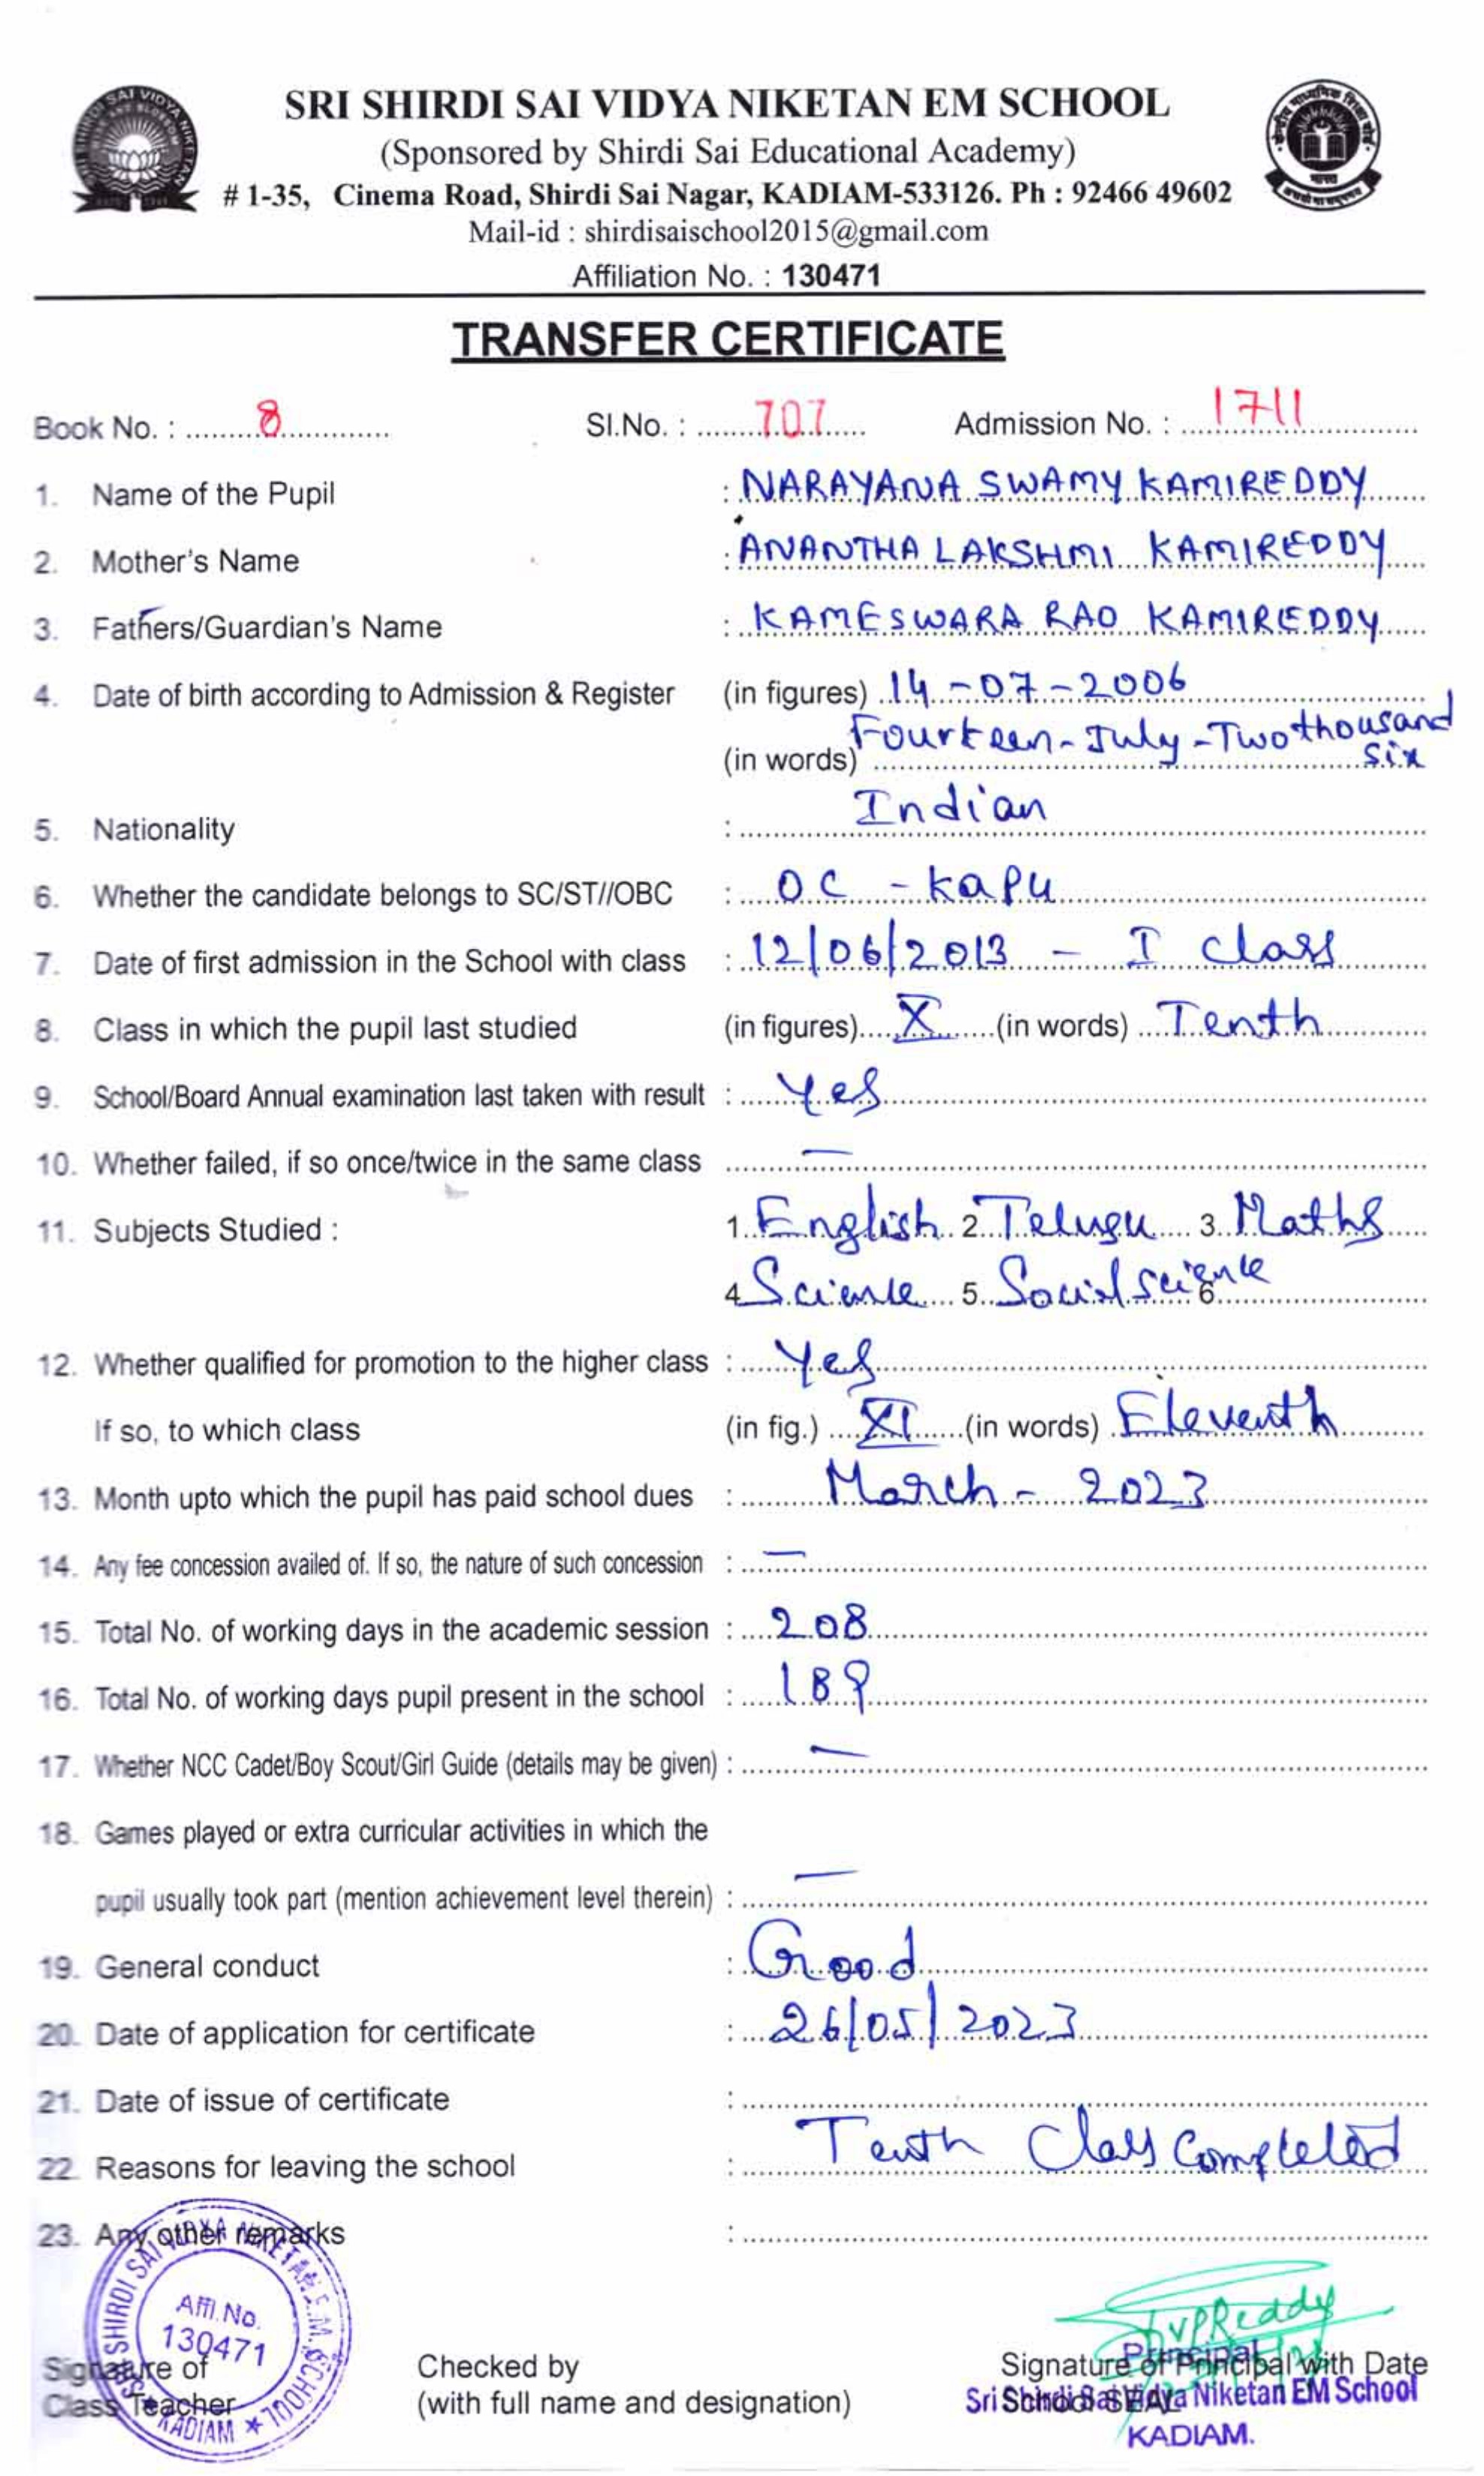 SRI SHIRDI SAI VIDYA NIKETAN EM SCHOOL
(Sponsored by Shirdi Sai Educational Academy)
# 1-35, Cinema Road, Shirdi Sai Nagar, KADIAM-533126. Ph : 92466 49602
Mail-id : shirdisaischool2015@gmail.com
Affiliation No. : 130471
TRANSFER CERTIFICATE
Book No. : 8 Sl.No. : 707 Admission No. : 1711
1. Name of the Pupil : NARAYANA SWAMY KAMIREDDY
2. Mother's Name : ANANTHA LAKSHMI KAMIREDDY
3. Fathers/Guardian's Name : KAMESWARA RAO KAMIREDDY
4. Date of birth according to Admission & Register (in figures) 14-07-2006
(in words) Fourteen-July-Two thousand
six
5. Nationality : Indian
6. Whether the candidate belongs to SC/ST//OBC : OC - Kapu
7. Date of first admission in the School with class : 12/06/2013 - I class
8. Class in which the pupil last studied (in figures) X (in words) Tenth
9. School/Board Annual examination last taken with result : Yes
10. Whether failed, if so once/twice in the same class —
11. Subjects Studied : 1. English 2. Telugu 3. Maths
4. Science 5. Social science 6.
12. Whether qualified for promotion to the higher class : Yes
If so, to which class (in fig.) XI (in words) Eleventh
13. Month upto which the pupil has paid school dues : March - 2023
14. Any fee concession availed of. If so, the nature of such concession : —
15. Total No. of working days in the academic session : 208
16. Total No. of working days pupil present in the school : 189
17. Whether NCC Cadet/Boy Scout/Girl Guide (details may be given) : —
18. Games played or extra curricular activities in which the
pupil usually took part (mention achievement level therein) : —
19. General conduct : Good
20. Date of application for certificate : 26/05/2023
21. Date of issue of certificate :
22. Reasons for leaving the school : Tenth Class Completed
23. Any other remarks :
SHIRDI SAI VIDYA NIKETAN E.M. SCHOOL
Affl.No.
130471
★ KADIAM ★
Signature of
Class Teacher
Checked by
(with full name and designation)
Reddy
Signature of Principal with Date
School SEAL
Principal
Sri Shirdi Sai Vidya Niketan EM School
KADIAM.